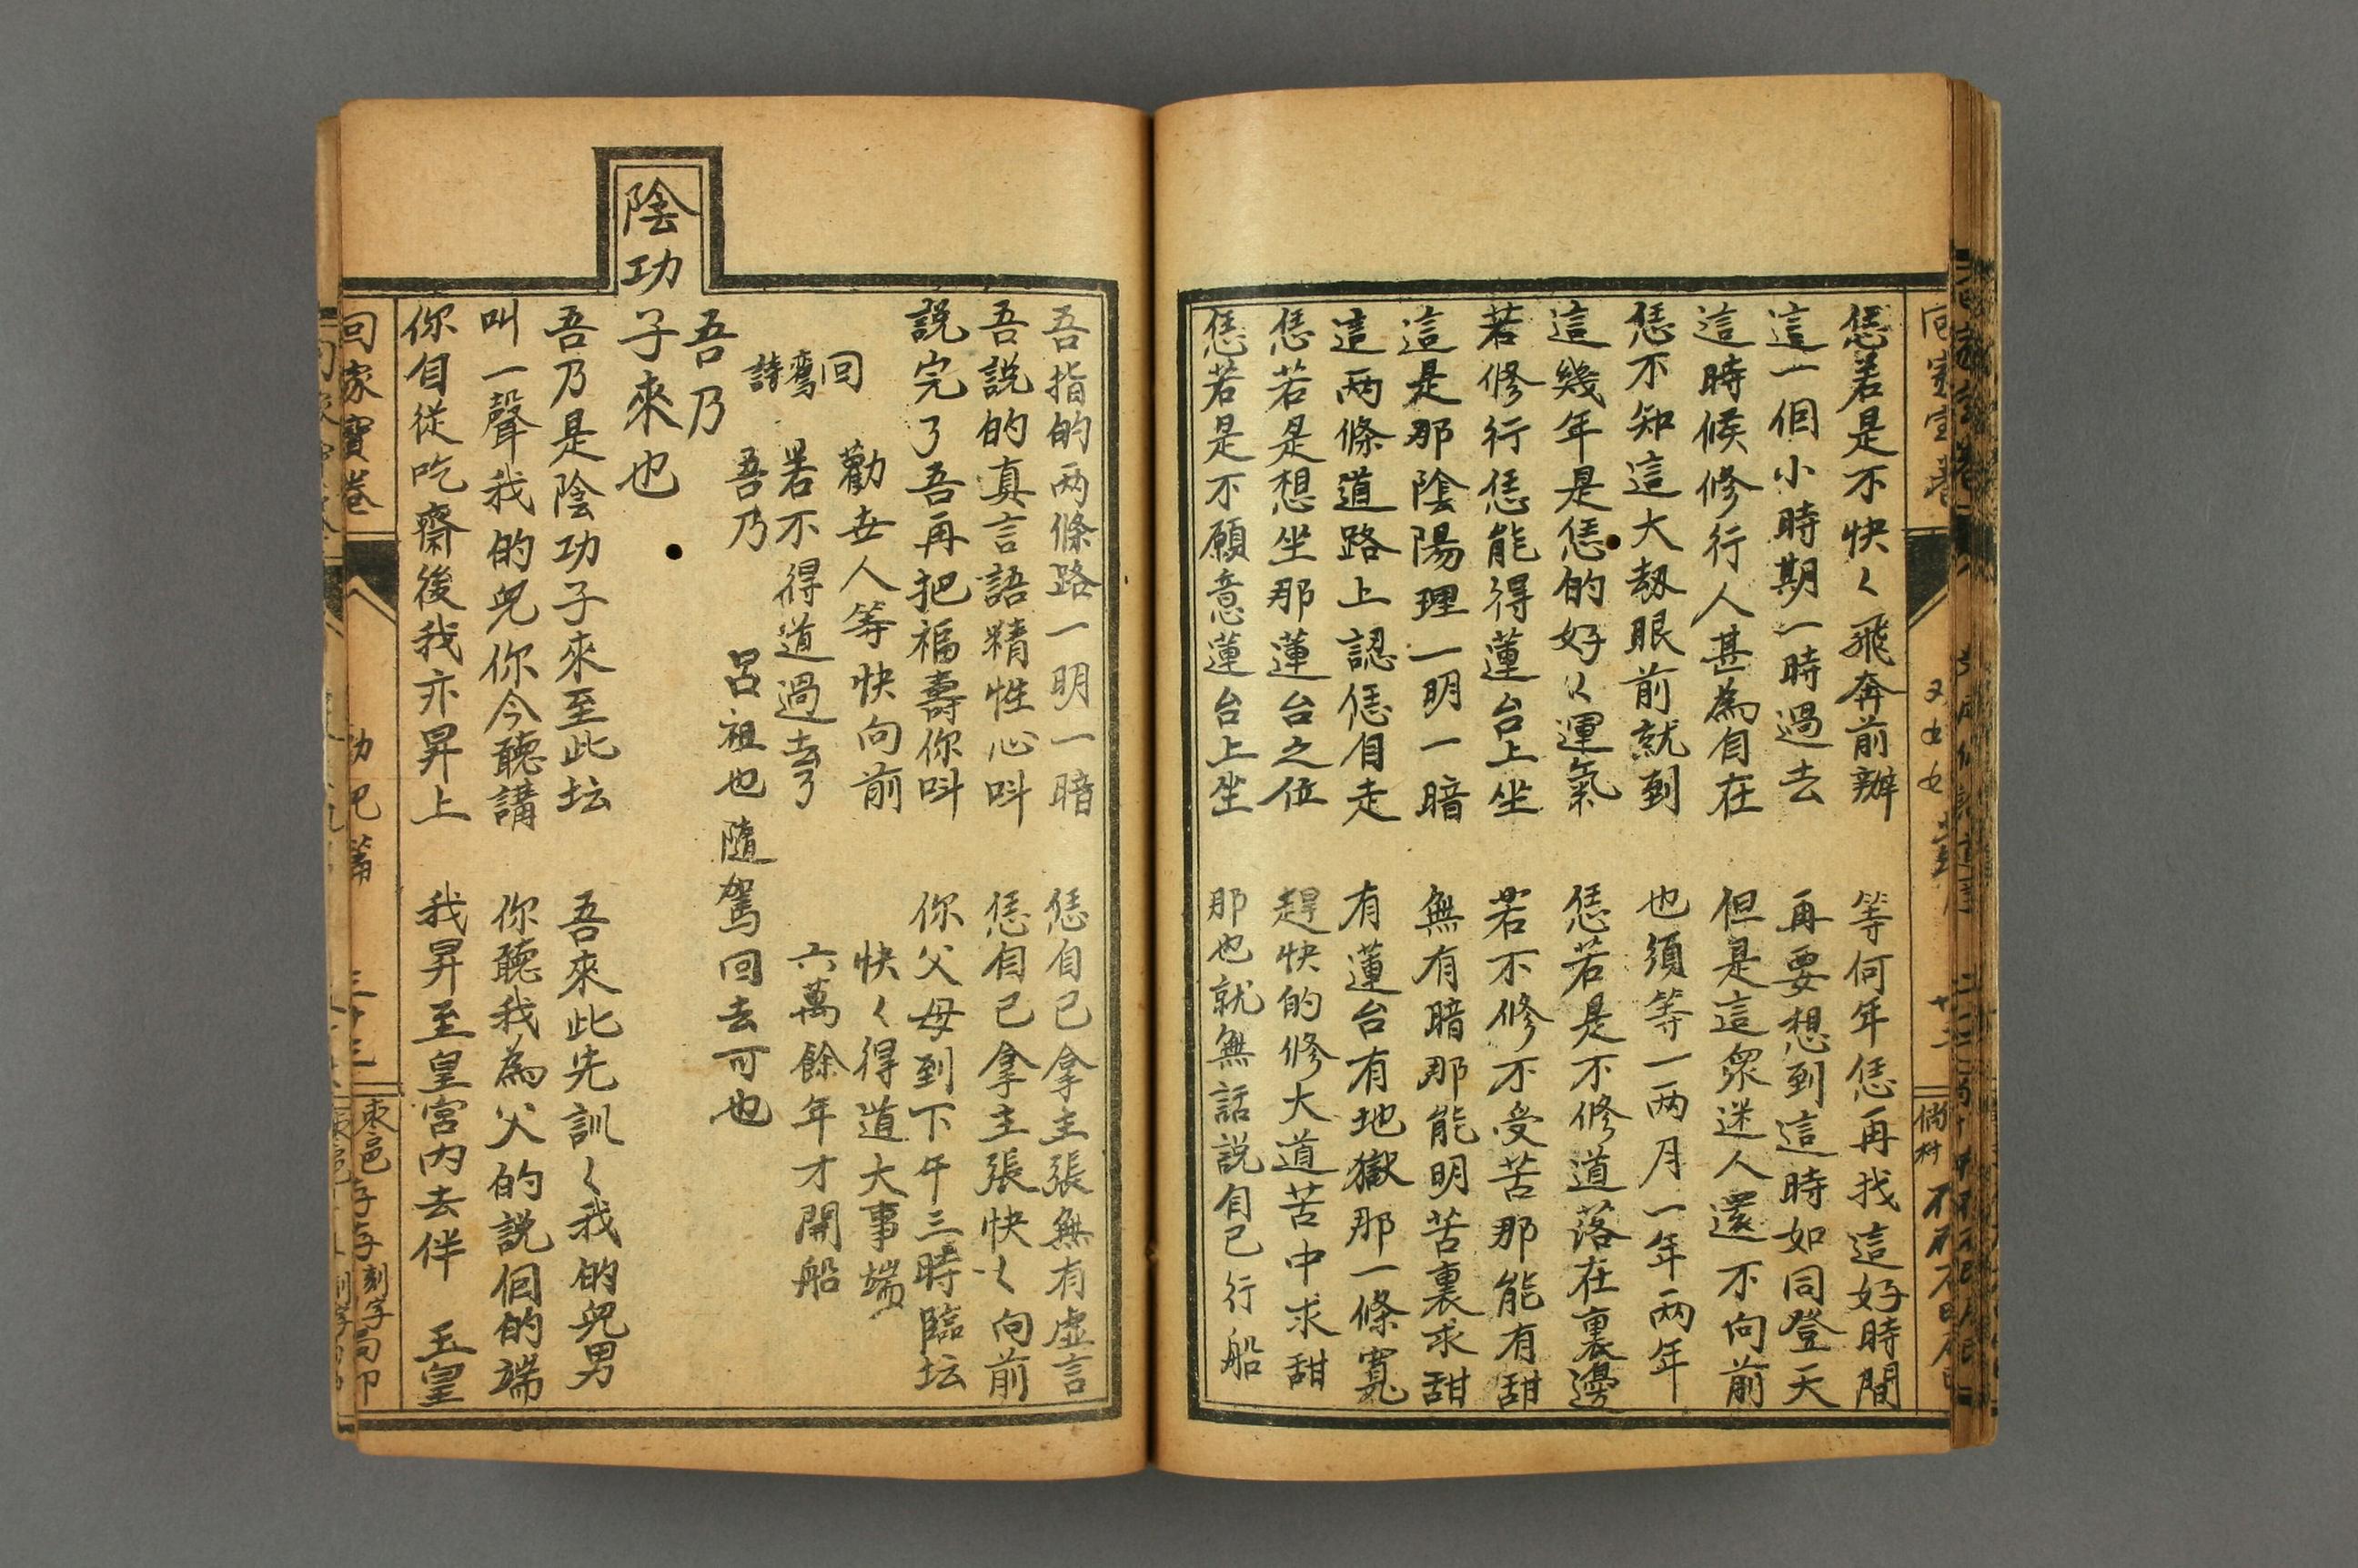 恁若是不快〻飛奔前辦　等何年恁再找這好時間
這一個小時期一時過去　再要想到這時如同登天
這時候修行人甚為自在　但是這眾迷人還不向前
恁不知這大刼眼前就到　也須等一両月一年両年
這幾年是恁的好〻運氣　恁若是不修道落在裏邊
若修行恁能得蓮台上坐　若不修不受苦那能有甜
這是那陰陽理一明一暗　無有暗那能明苦裏求甜
這両條道路上認恁自走　有蓮台有地獄那一條寬
恁若是想坐那蓮台之位　趕快的修大道苦中求甜
恁若是不願意蓮台上坐　那也就無話説自己行船
吾指的両條路一明一暗　恁自己拿主張無有虛言
吾説的真言語精性心呌　恁自己拿主張快〻向前
説完了吾再把福壽你呌　你父母到下午三時臨坛
回　勸世人等快向前　快〻得道大事端
鸞　若不得道過去了　六萬餘年才開船
詩
吾乃　呂祖也　隨駕回去可也
吾乃
陰功子來也
吾乃是陰功子來至此坛　吾來此先訓〻我的兒男
叫一聲我的兒你今聽講　你聽我為父的説個的端
你自從吃齋後我亦昇上　我昇至皇宮内去伴　玉皇
回家寶卷
棗邑
刻字局印